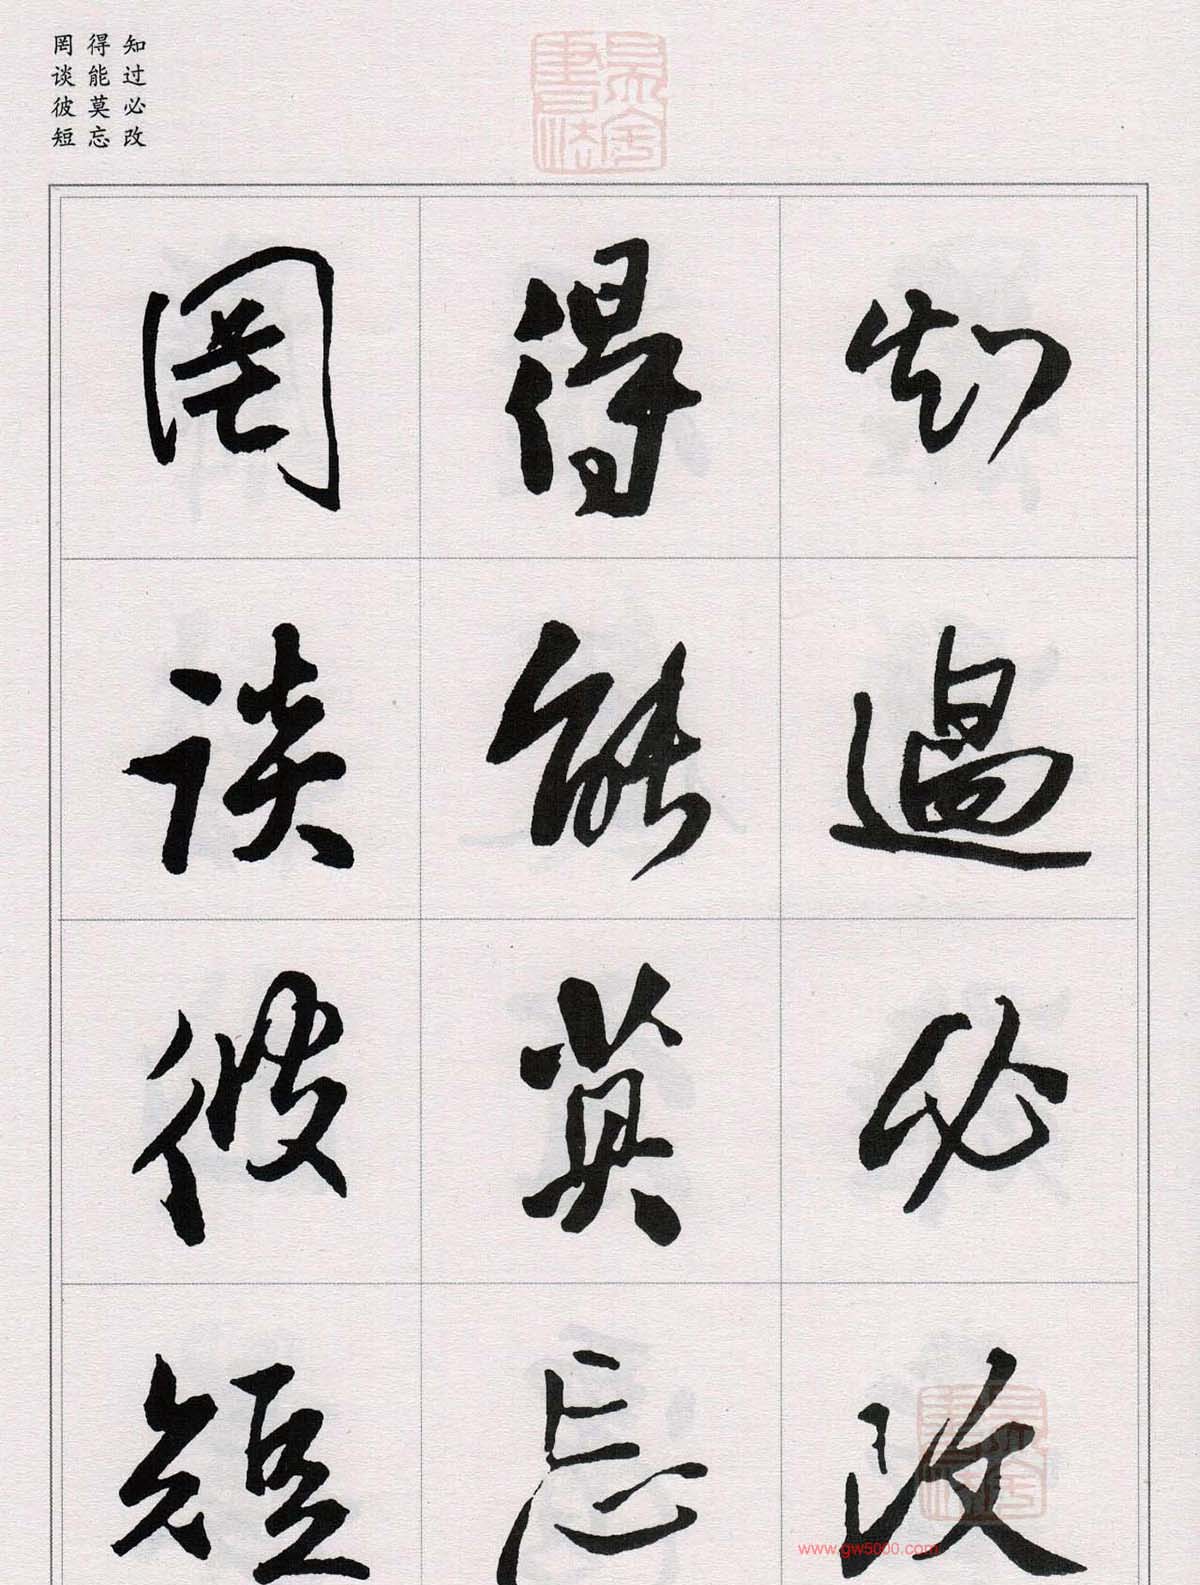 知过必改
得能莫忘
罔谈彼短
知過必改
得能莫忘
罔談彼短
www.gw5000.com